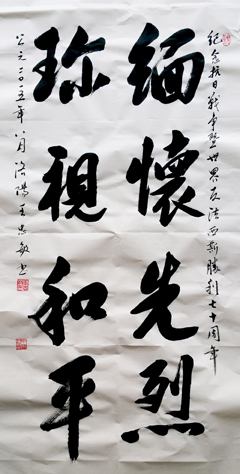 纪念抗日战争暨世界反法西斯胜利七十周年
缅懷先烈
珎視和平
公元二〇一五年八月洛陽王忠敏书